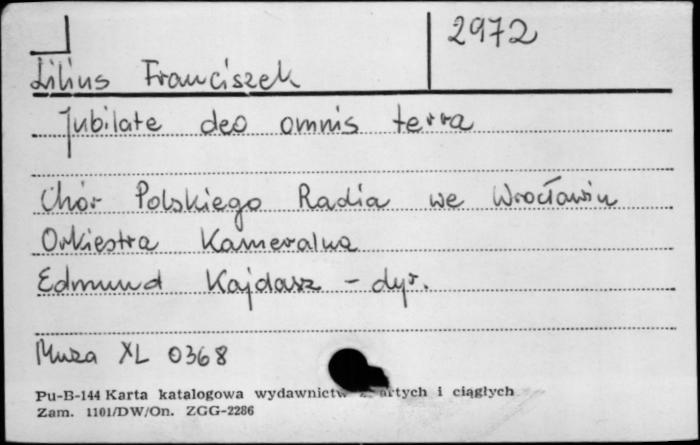 2972
Lilius Franciszek
Jubilate deo omnis terra
Chór Polskiego Radia we Wrocławiu
Orkiestra Kameralna
Edmund Kajdasz - dyr.
Muza XL 0368
Pu-B-144 Karta katalogowa wydawnictw i ciągłych
Zam. 1101/DW/On. ZGG-2286